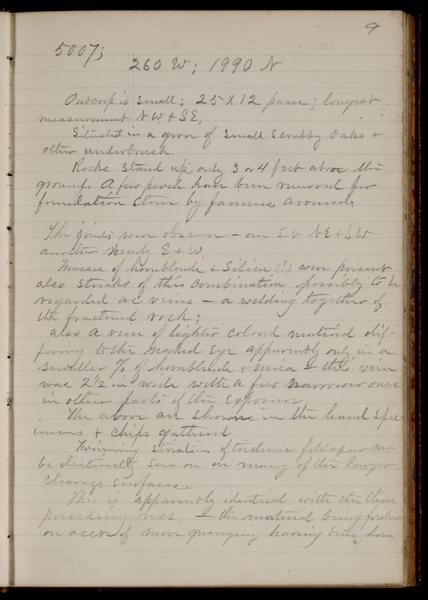 9
5007
260 W; 1990 N
Outcrop is small; 25 X 12 pace; longest
measurement NW & SE.
Situated in a grove of small scrubby oaks &
other underbrush.
Rocks stand up only 3 or 4 feet above the
ground. A few pieces have been removed for
foundation stone by farmers around.
The joints were obscure - one set NE & SW
another nearly E & W.
Masses of hornblende & Silica (?) were present
also streaks of this combination possibly to be
regarded as veins - a welding together of
the fractured rock;
also a vein of lighter colored material dif-
fering to the naked eye apparently only in a
smaller % of hornblende & mica - this vein
was 2 1/2 in wide with a few narrower ones
in other parts of the exposure.
The above are shown in the hand spec
imens & chips gathered.
Twinning striations of triclinic feldspar can
be distinctly seen on many of the larger
cleavage surfaces.
This is apparently identical with the three
preceding nos. - the material being
on acct of more quarrying having been done